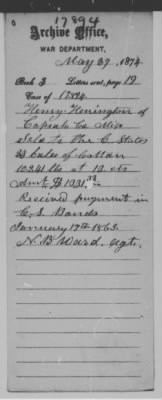 17894
Archive Office,
WAR DEPARTMENT,
May 29, 1874
Book 3 Letters sent, page 19
Case of 17894
Henry Henington of
Copiah Co. Miss
Sold to the C. States
23 bales of cotton
10341 lbs at 10 cts
Amt. $1031.
Received payment in
C. S. Bonds
January 17th 1863.
N. B Ward. agt.